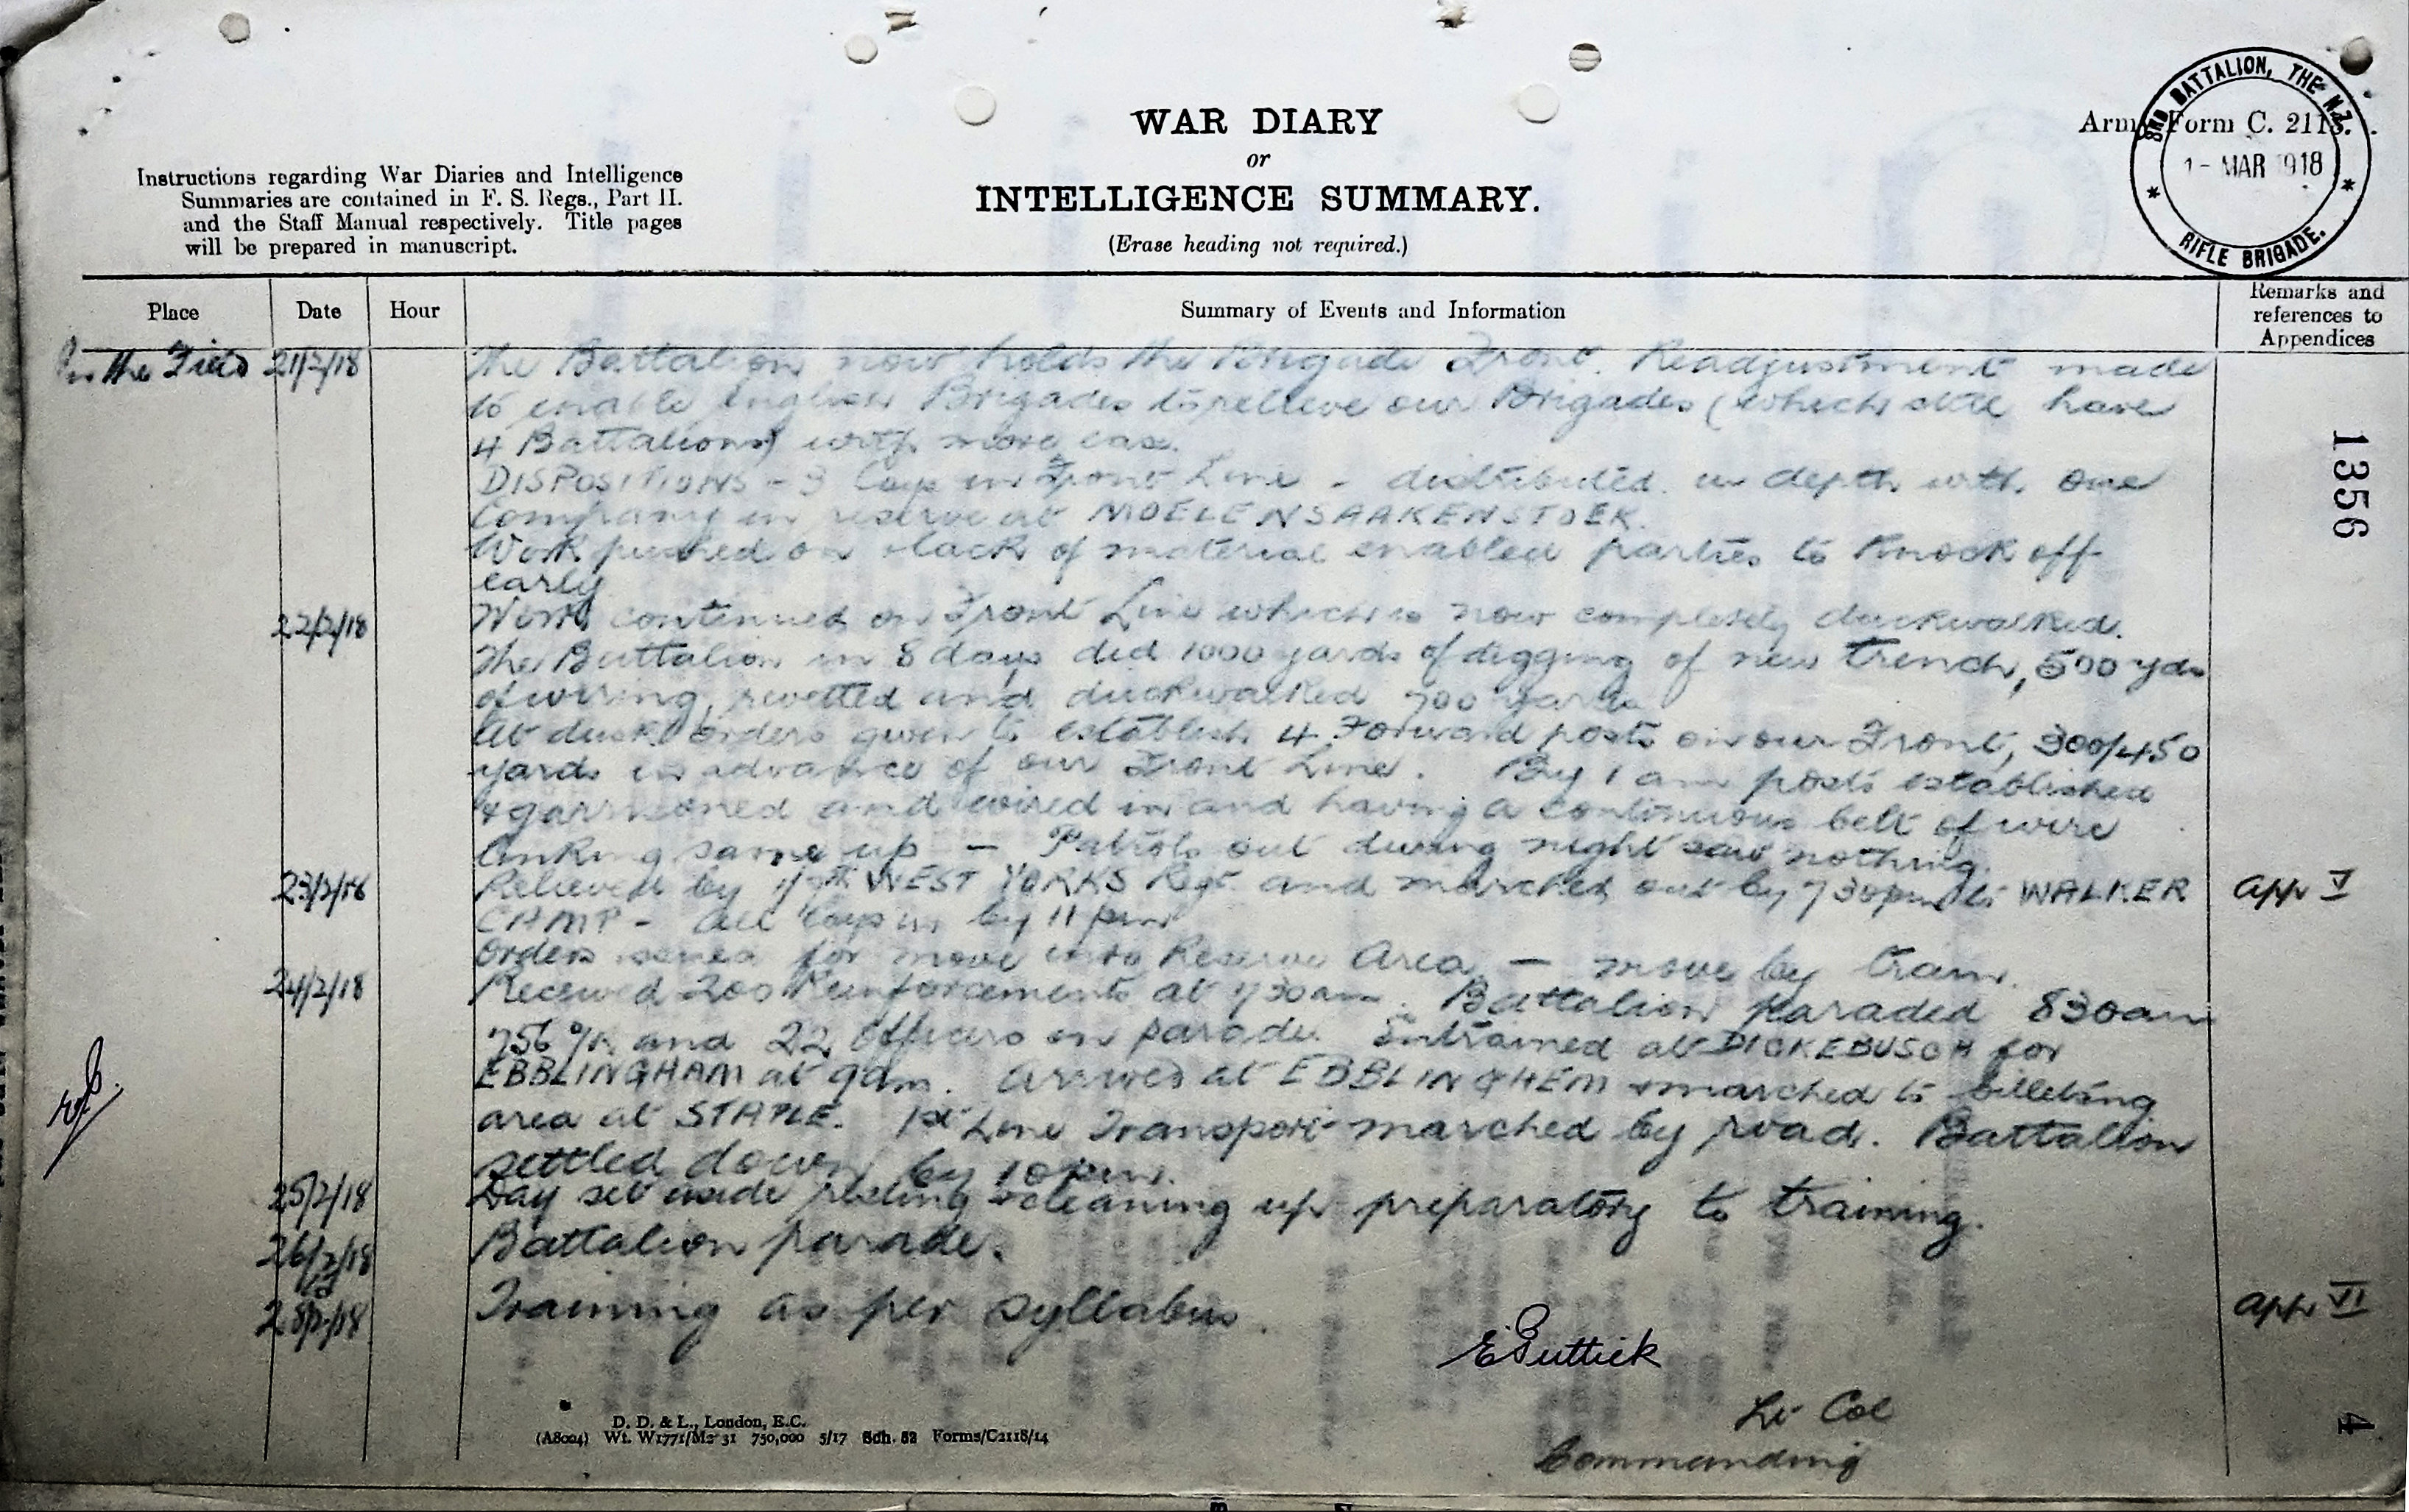 WAR DIARY
or
INTELLIGENCE SUMMARY.
(Erase heading not required.)
Army Form C. 2118.
3RD BATTALION, THE N.Z.
1 - MAR 1918
RIFLE BRIGADE.
Instructions regarding War Diaries and Intelligence
Summaries are contained in F. S. Regs., Part II.
and the Staff Manual respectively. Title pages
will be prepared in manuscript.
Place Date Hour Summary of Events and Information Remarks and
references to
Appendices
In the Field 21/2/18 The Battalion now holds the Brigade Front. Readjustment made
to enable English Brigades to relieve our Brigades (which still have
4 Battalions) with more ease.
DISPOSITIONS - 3 Coys in Front Line - distributed in depth with one
Company in reserve at MOELENSAAKENSTOEK.
Work pushed on lack of material enabled parties to knock off
early
22/2/18 Work continued on Front Line which is now completely duckwalked.
The Battalion in 8 days did 1000 yards of digging of new trench, 500 yds
of wiring, revetted and duckwalked 700 yards
At dusk orders given to establish 4 Forward posts on our Front, 300/450
yards in advance of our Front Line. By 1 am posts established
& garrisoned and wired in and having a continuous belt of wire
linking same up — Patrols out during night saw nothing.
23/2/18 Relieved by WEST YORKS Regt. and marched out by 730pm to WALKER App V
CAMP - all Coys in by 11 pm
Orders issued for move into Reserve Area — move by train.
24/2/18 Received 200 Reinforcements at 730am. Battalion paraded 830am
756 O/R and 22 Officers on parade. Entrained at DICKEBUSCH for
EBBLINGHAM at 9am. Arrived at EBBLINGHEM & marched to billeting
area at STAPLE. 1st Line Transport marched by road. Battalion
settled down by 10pm.
25/2/18 Day set aside & cleaning up preparatory to training.
26/2/18 Battalion parade.
to
28/2/18 Training as per syllabus. App VI
E Puttick
Lt Col
Commanding
1356
4
D. D. & L., London, E.C.
(A8004) Wt. W1771/M2 31 750,000 5/17 Sch. 52 Forms/C2118/14